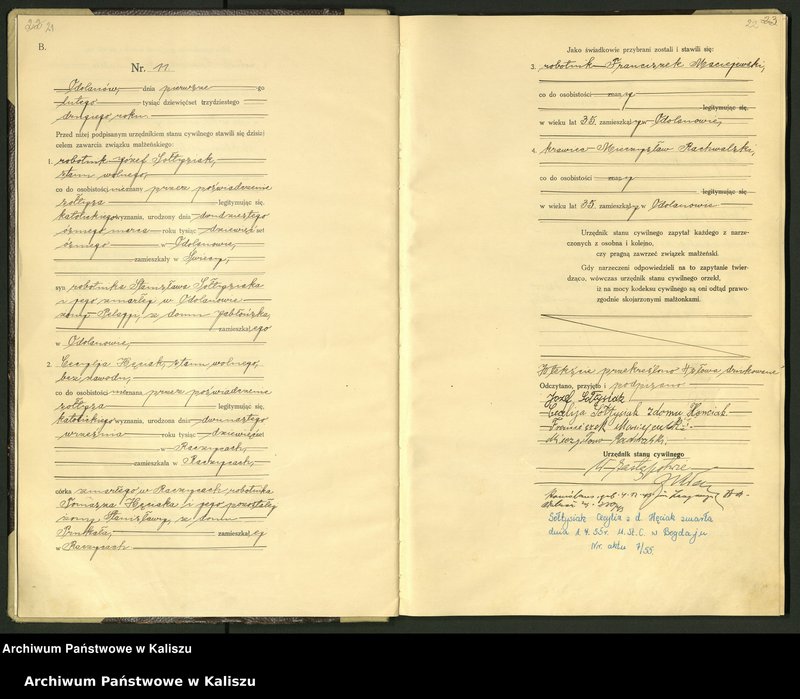 22
B.
Nr. 11
Odolanów, dnia pierwszego
lutego tysiąc dziewięćset trzydziestego
drugiego roku.
Przed niżej podpisanym urzędnikiem stanu cywilnego stawili się dzisiaj
celem zawarcia związku małżeńskiego:
1. robotnik Józef Sołtysiak,
stanu wolnego,
co do osobistości nieznany przez poświadczenie
sołtysa legitymując się,
katolickiego wyznania, urodzony dnia
ósmego marca roku tysiąc dziewięćset
ósmego w Odolanowie,
zamieszkały w Świecy,
syn robotnika Stanisława Sołtysiaka
i jego zmarłej w Odolanowie
żony Pelagji, z domu Jabłońska,
zamieszkałego
w Odolanowie,
2. Cecylja Hęciak, stanu wolnego,
bez zawodu,
co do osobistości nieznana przez poświadczenie
sołtysa legitymując się,
katolickiego wyznania, urodzona dnia
września roku tysiąc dziewięćset
w Raczycach,
zamieszkała w Raczycach,
córka zmarłego w Raczycach robotnika
Tomasza Hęciaka i jego pozostałej
żony Stanisławy, z domu
zamieszkałej
w Raczycach
23
Jako świadkowie przybrani zostali i stawili się:
3. robotnik Franciszek Maciejewski,
co do osobistości znany
legitymując się,
w wieku lat 35, zamieszkały w Odolanowie,
4. krawiec Mieczysław Rachwalski,
co do osobistości znany
legitymując się
w wieku lat 35. zamieszkały w Odolanowie
Urzędnik stanu cywilnego zapytał każdego z narze-
czonych z osobna i kolejno,
czy pragną zawrzeć związek małżeński.
Gdy narzeczeni odpowiedzieli na to zapytanie twier-
dząco, wówczas urzędnik stanu cywilnego orzekł,
iż na mocy kodeksu cywilnego są oni odtąd prawo-
zgodnie skojarzonymi małżonkami.
W tekście przekreślono słowa drukowane
Odczytano, przyjęto i podpisano
Józef Sołtysiak
Cecylja Sołtysiak z domu Henciak
Franciszek Maciejewski
Mieczysław Rachwalski
Urzędnik stanu cywilnego
W zastępstwie
Sołtysiak Cecylia z d. Hęciak zmarła
dnia 1.4.55r. U.St.C. w Bogdaju
Nr. aktu 7/55.
Archiwum Państwowe w Kaliszu
Archiwum Państwowe w Kaliszu